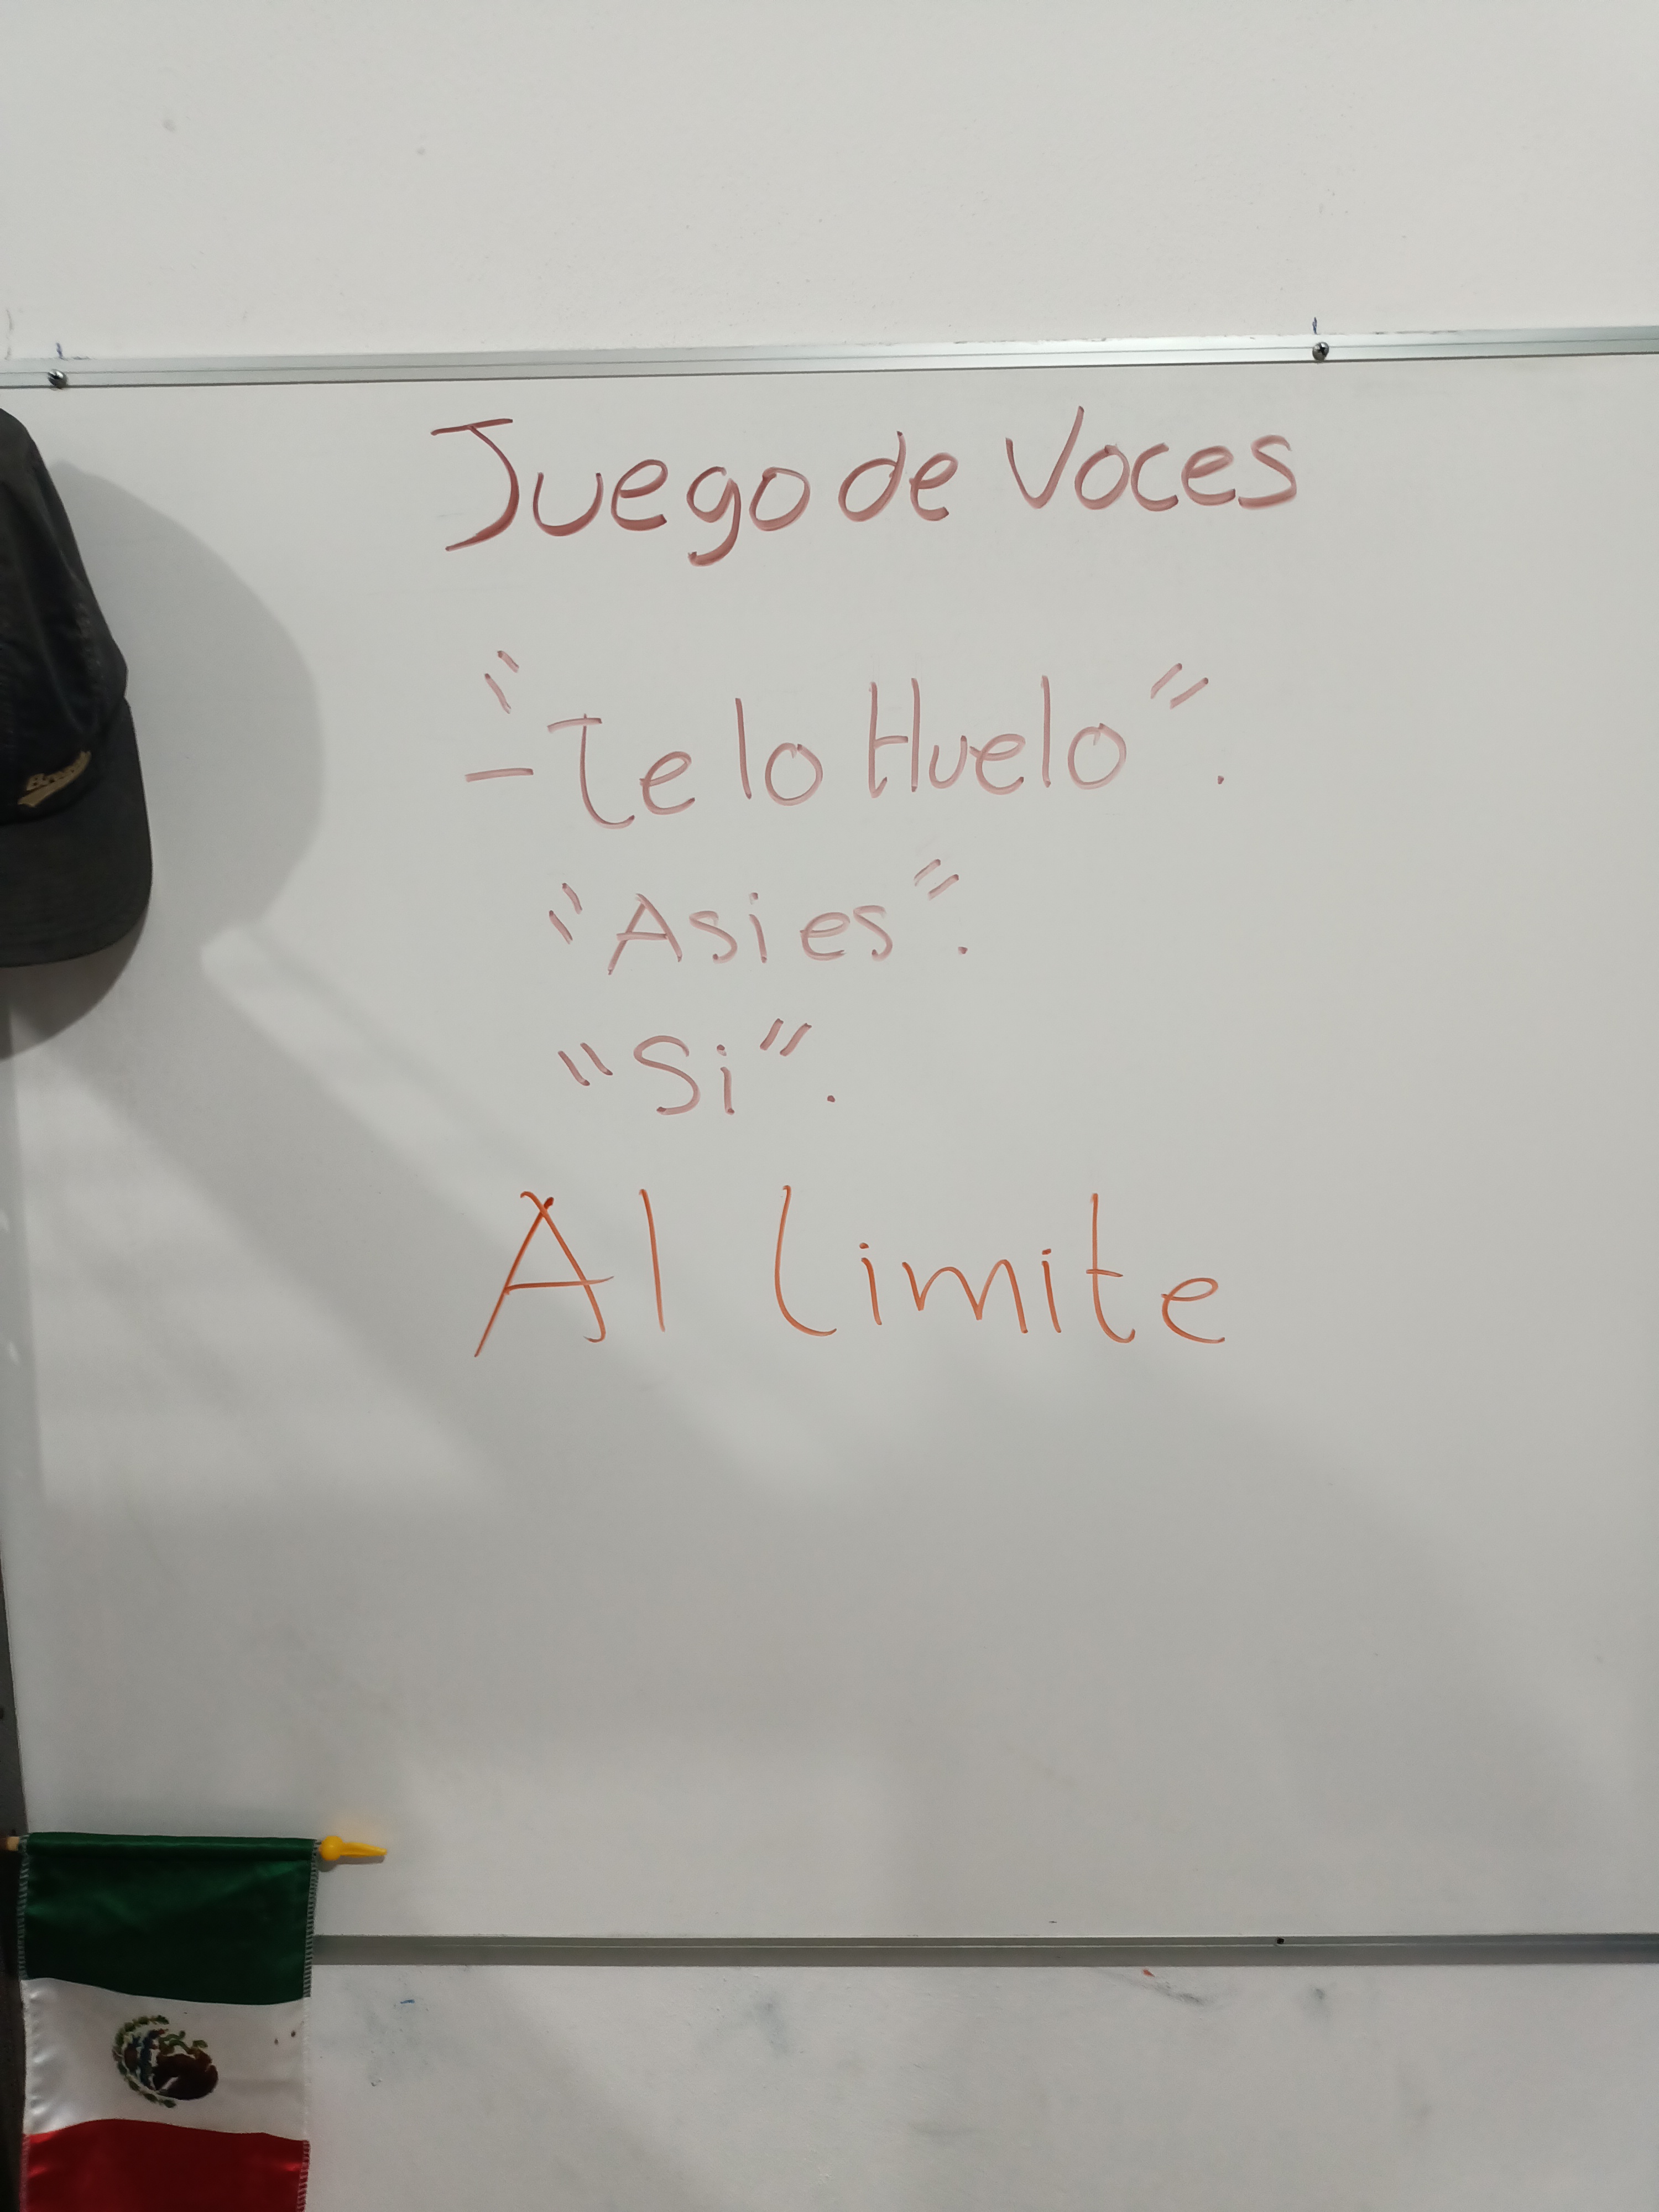 Juego de Voces
-"Te lo Huelo".
"Asi es".
"Si".
Al Limite